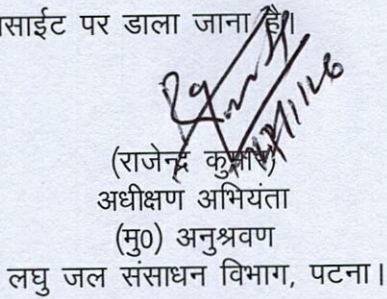 साईट पर डाला जाना है।
(राजेन्द्र कुमार)
अधीक्षण अभियंता
(मु0) अनुश्रवण
लघु जल संसाधन विभाग, पटना।